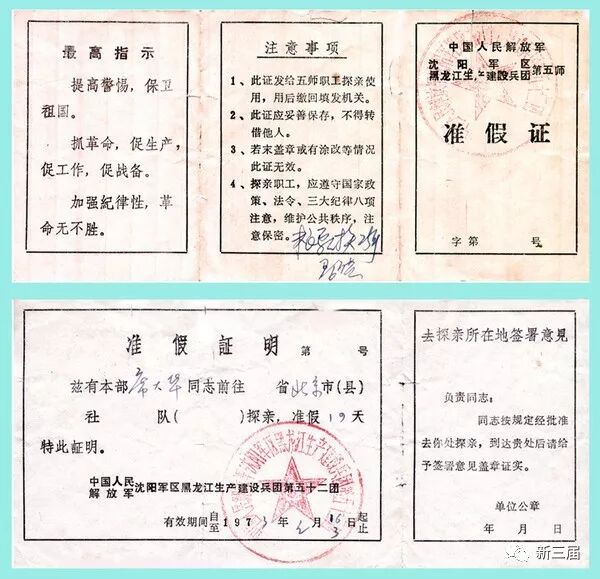 最高指示
提高警惕，保卫
祖国。
抓革命，促生产，
促工作，促战备。
加强纪律性，革
命无不胜。
注意事项
1、此证发给五师职工探亲使
用，用后缴回填发机关。
2、此证应妥善保存，不得转
借他人。
3、若末盖章或有涂改等情况
此证无效。
4、探亲职工，应遵守国家政
策、法令、三大纪律八项
注意，维护公共秩序，注
意保密。
中国人民解放军
沈阳军区
黑龙江生产建设兵团 第五师
准假证
字第 号
准假证明 第 号
兹有本部 大华 同志前往 省 北京 市(县)
社 队( )探亲，准假19天
特此证明。
中国人民
解放军 沈阳军区黑龙江生产建设兵团第五十二团
有效期间 自至 197 年 月 起止
去探亲所在地签署意见
负责同志：
同志按规定经批准
去你处探亲，到达贵处后请给
予签署意见盖章证实。
单位公章
年 月 日
新三届